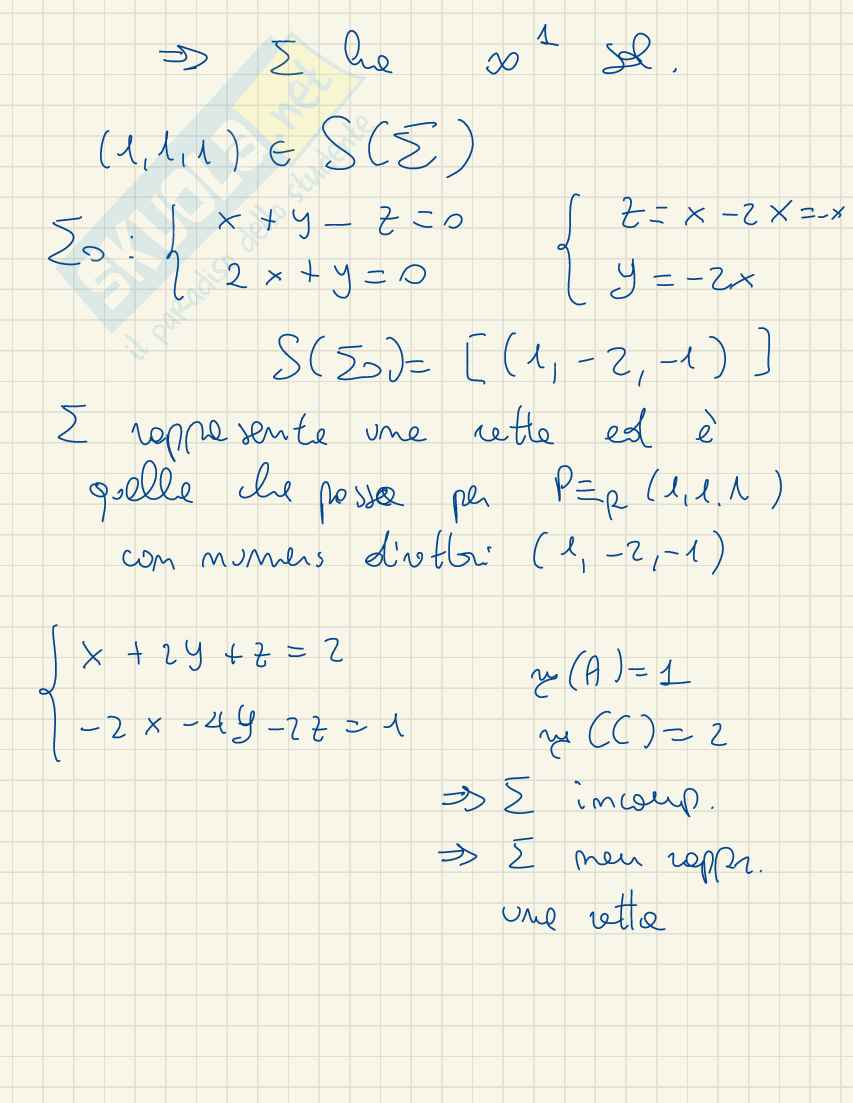 ⇒ Σ ha ∞¹ sol.
(1,1,1) ∈ S(Σ)
Σ₀ : { x + y - z = 0
2x + y = 0
{ z = x - 2x = -x
y = -2x
S(Σ₀) = [(1, -2, -1)]
Σ rappresenta una retta ed è
quella che passa per P ≡_R (1,1,1)
con numeri direttori (1, -2, -1)
{ x + 2y + z = 2
-2x - 4y - 2z = 1
r(A) = 1
r(C) = 2
⇒ Σ incomp.
⇒ Σ non rappr.
una retta
SKUOLA.net
il paradiso dello studente